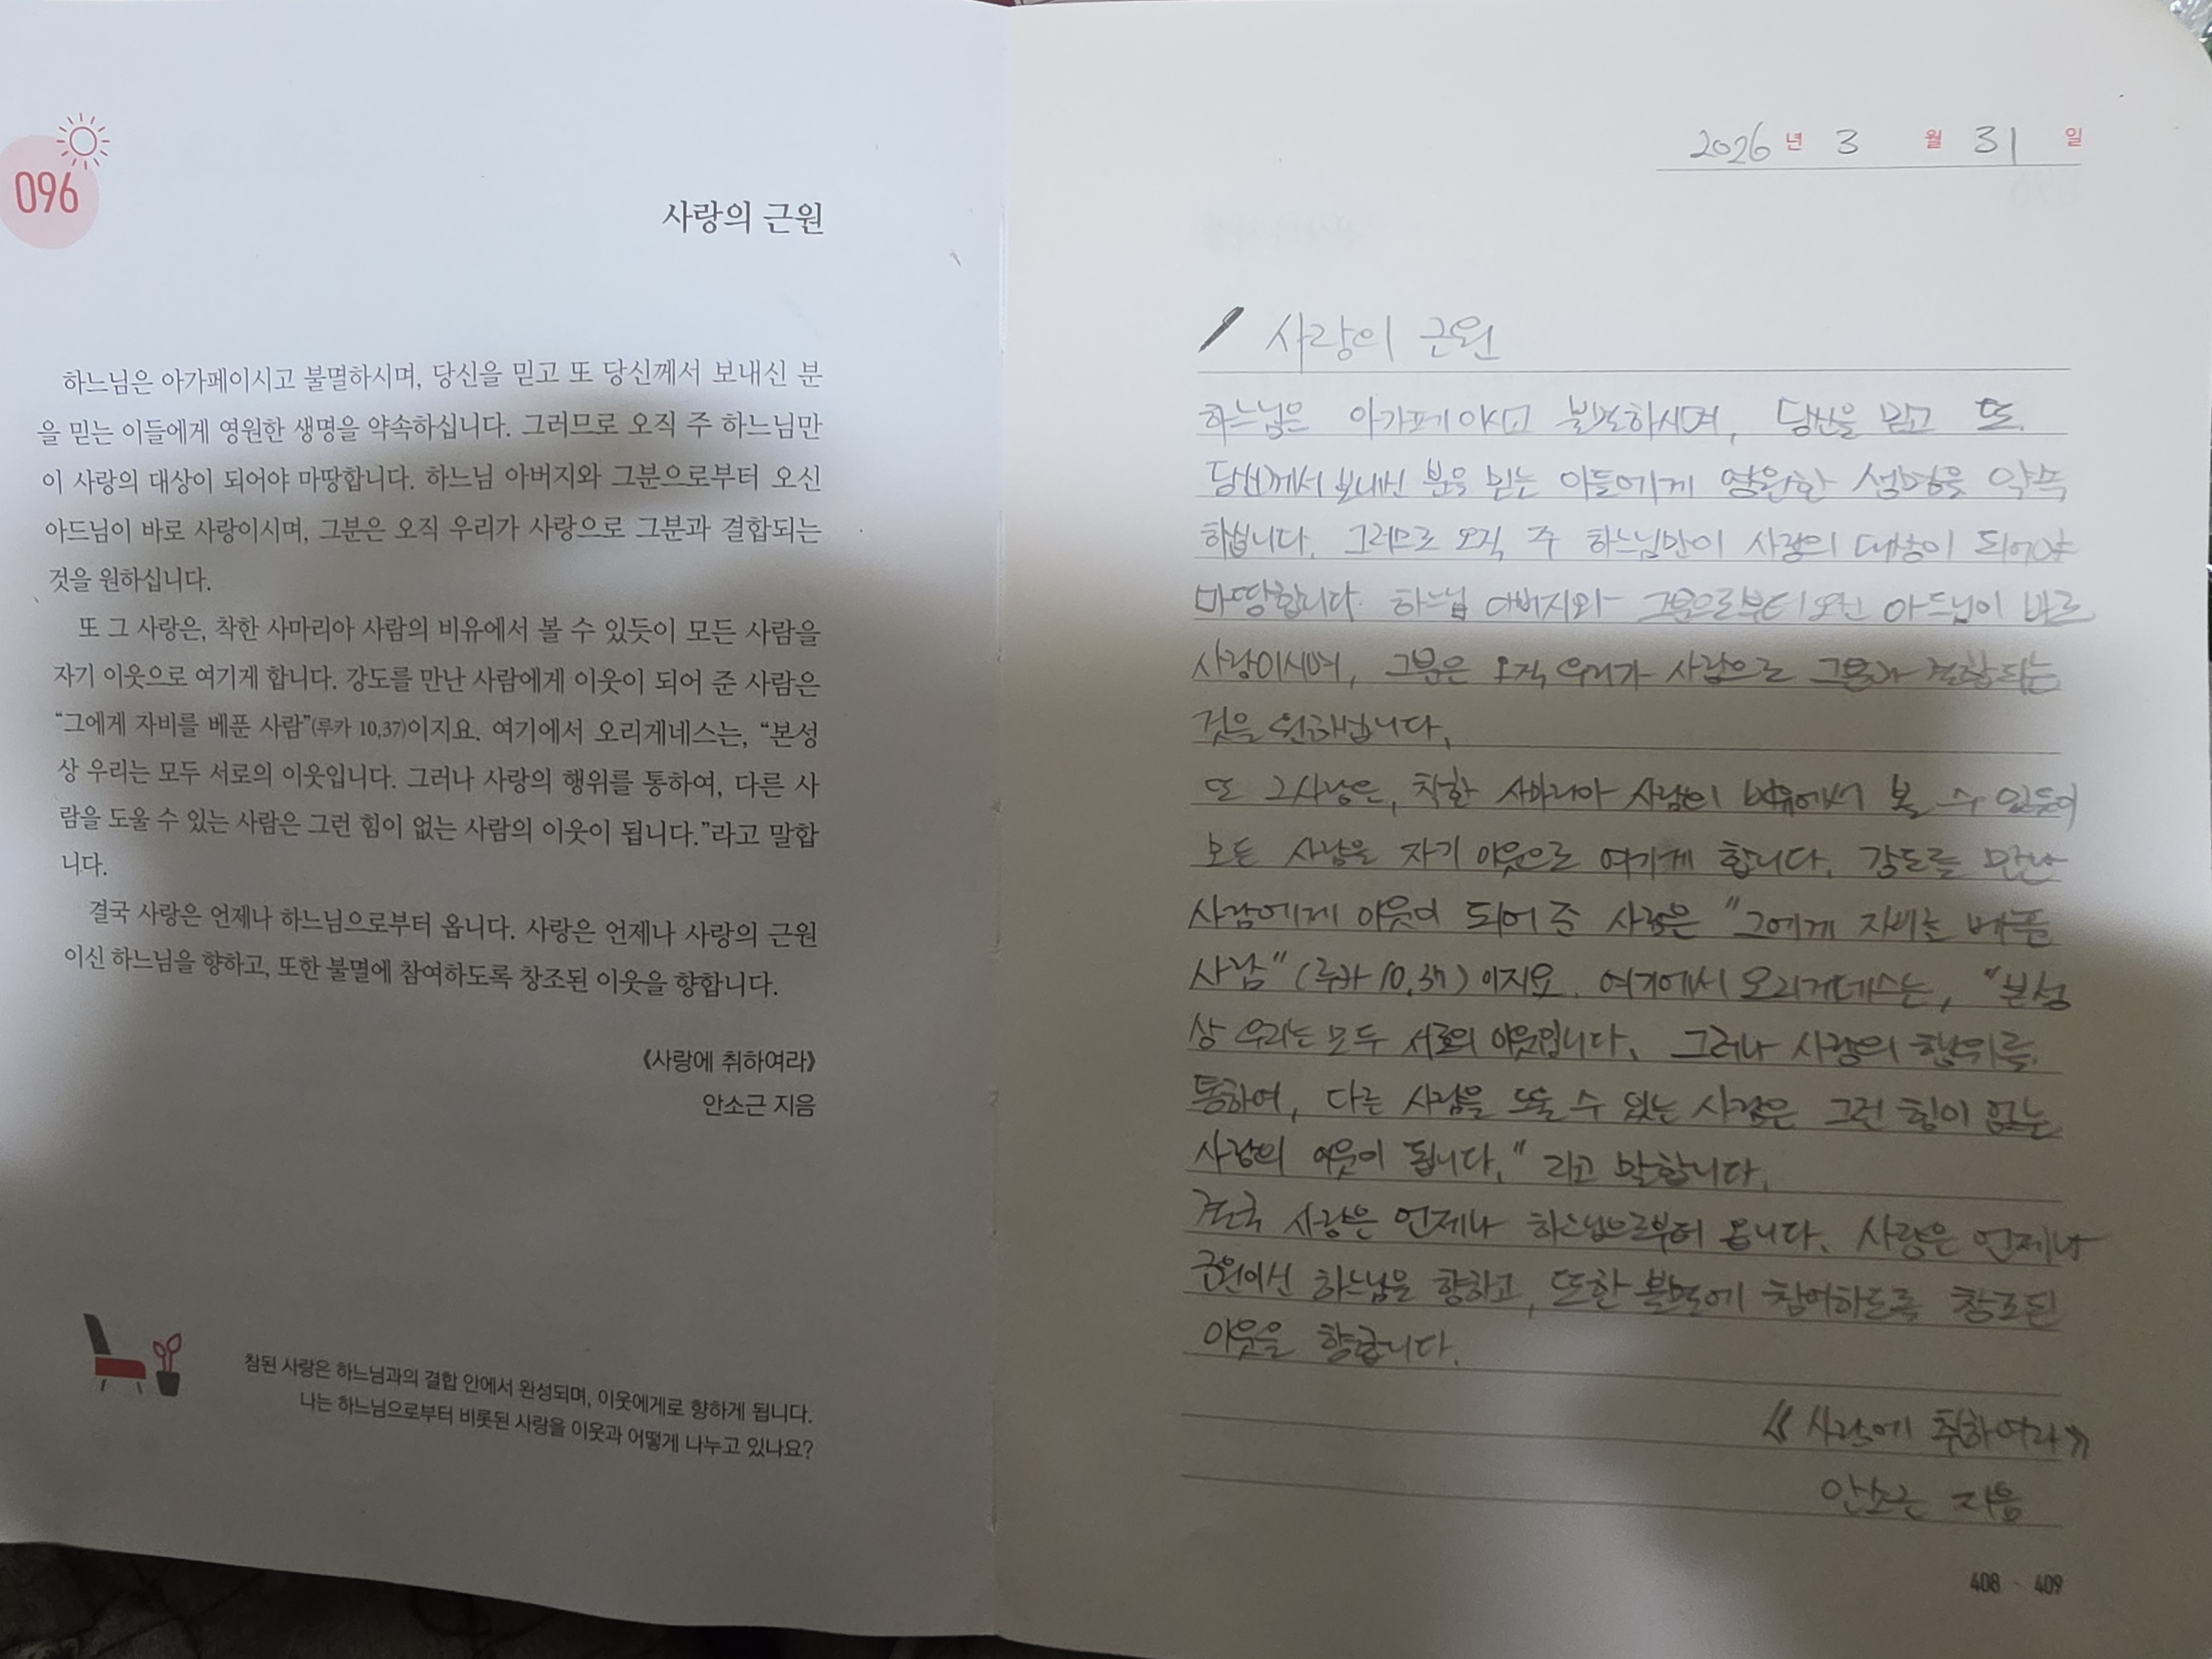 096
사랑의 근원
하느님은 아가페이시고 불멸하시며, 당신을 믿고 또 당신께서 보내신 분
을 믿는 이들에게 영원한 생명을 약속하십니다. 그러므로 오직 주 하느님만
이 사랑의 대상이 되어야 마땅합니다. 하느님 아버지와 그분으로부터 오신
아드님이 바로 사랑이시며, 그분은 오직 우리가 사랑으로 그분과 결합되는
것을 원하십니다.
또 그 사랑은, 착한 사마리아 사람의 비유에서 볼 수 있듯이 모든 사람을
자기 이웃으로 여기게 합니다. 강도를 만난 사람에게 이웃이 되어 준 사람은
“그에게 자비를 베푼 사람”(루카 10,37)이지요. 여기에서 오리게네스는, “본성
상 우리는 모두 서로의 이웃입니다. 그러나 사랑의 행위를 통하여, 다른 사
람을 도울 수 있는 사람은 그런 힘이 없는 사람의 이웃이 됩니다.”라고 말합
니다.
결국 사랑은 언제나 하느님으로부터 옵니다. 사랑은 언제나 사랑의 근원
이신 하느님을 향하고, 또한 불멸에 참여하도록 창조된 이웃을 향합니다.
《사랑에 취하여라》
안소근 지음
참된 사랑은 하느님과의 결합 안에서 완성되며, 이웃에게로 향하게 됩니다.
나는 하느님으로부터 비롯된 사랑을 이웃과 어떻게 나누고 있나요?
2026 년 3 월 31 일
사랑의 근원
하느님은 아가페이시고 불멸하시며, 당신을 믿고 또
당신께서 보내신 분을 믿는 이들에게 영원한 생명을 약속
하십니다. 그러므로 오직 주 하느님만이 사랑의 대상이 되어야
마땅합니다. 하느님 아버지와 그분으로부터 오신 아드님이 바로
사랑이시며, 그분은 오직 우리가 사랑으로 그분과 결합되는
것을 원하십니다.
또 그 사랑은, 착한 사마리아 사람의 비유에서 볼 수 있듯이
모든 사람을 자기 이웃으로 여기게 합니다. 강도를 만난
사람에게 이웃이 되어 준 사람은 "그에게 자비를 베푼
사람" (루카 10,37) 이지요. 여기에서 오리게네스는, "본성
상 우리는 모두 서로의 이웃입니다. 그러나 사랑의 행위를
통하여, 다른 사람을 도울 수 있는 사람은 그런 힘이 없는
사람의 이웃이 됩니다." 라고 말합니다.
결국 사랑은 언제나 하느님으로부터 옵니다. 사랑은 언제나
근원이신 하느님을 향하고, 또한 불멸에 참여하도록 창조된
이웃을 향합니다.
《사랑에 취하여라》
안소근 지음
408 - 409